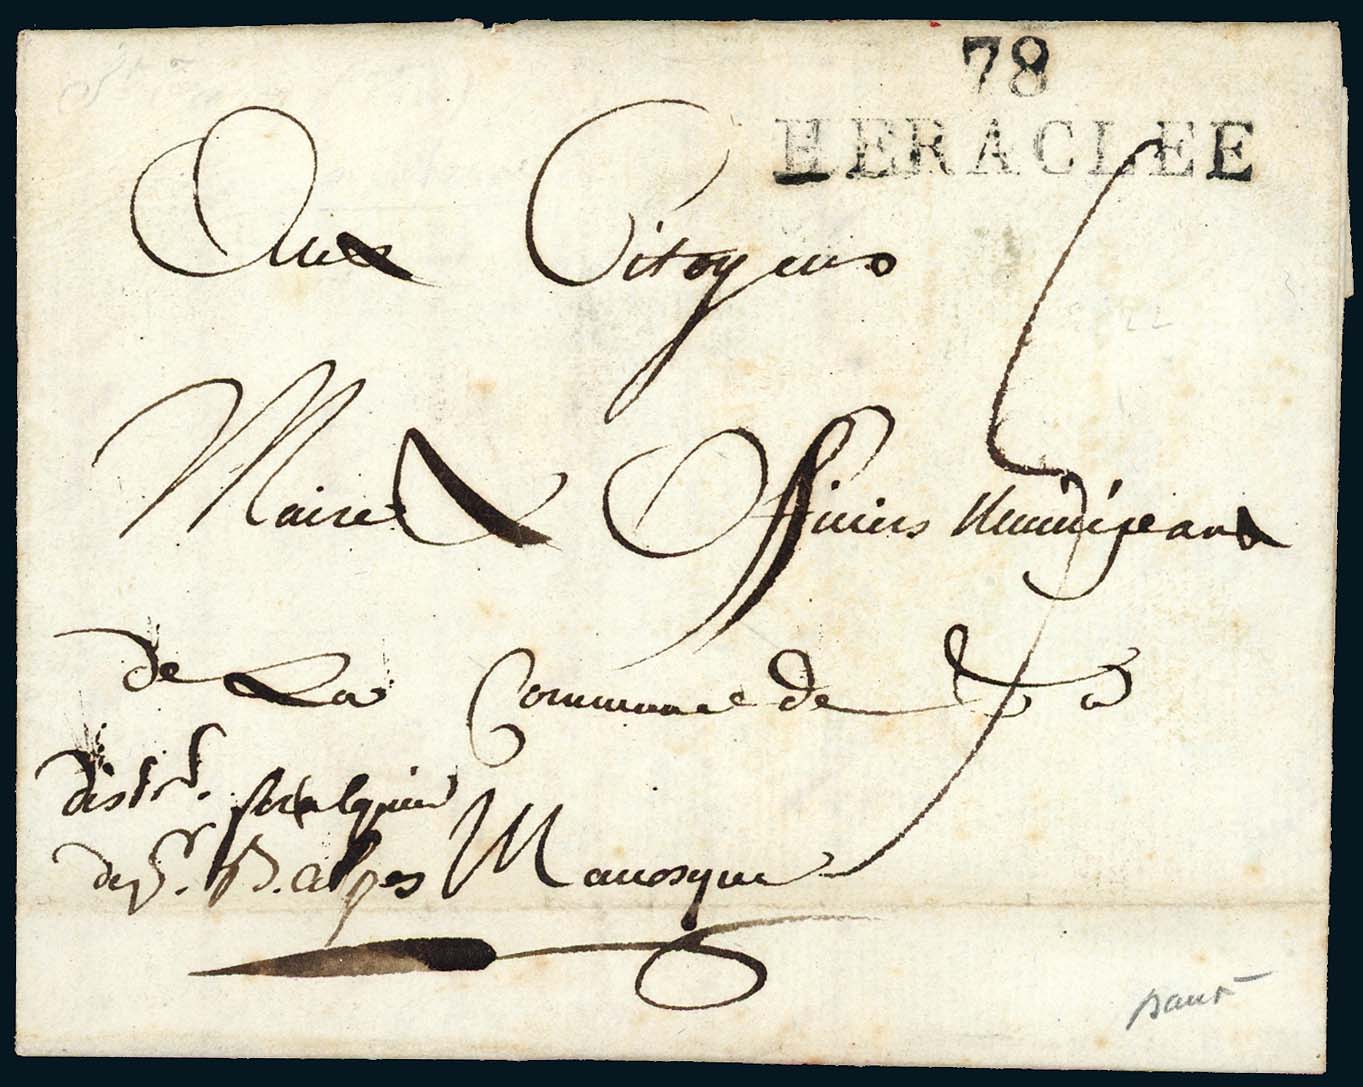 78
HERACLEE
Aux Citoyens
Maire & Officiers Municipeaux
de La Commune de
distr.t forcalquier
dep.t B. alpes Manosque